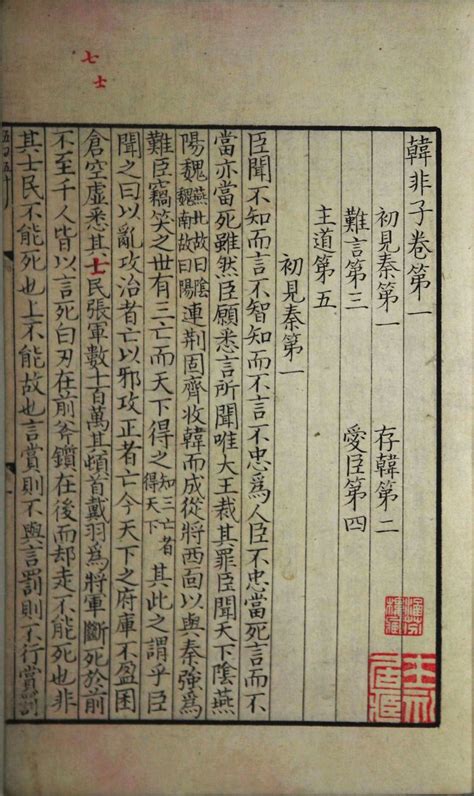 七
士
韓非子卷第一
初見秦第一 存韓第二
難言第三 愛臣第四
主道第五
初見秦第一
臣聞不知而言不智知而不言不忠爲人臣不忠當死言而不
當亦當死雖然臣願悉言所聞唯大王裁其罪臣聞天下陰燕
陽魏燕北故曰陰魏南故曰陽連荆固齊收韓而成從將西面以與秦強爲
難臣竊笑之世有三亡而天下得之知三亡者得天下其此之謂乎臣
聞之曰以亂攻治者亡以邪攻正者亡今天下之府庫不盈囷
倉空虛悉其士民張軍數十百萬其頓首戴羽爲將軍斷死於前
不至千人皆以言死白刃在前斧鑕在後而却走不能死也非
其士民不能死也上不能故也言賞則不與言罰則不行賞罰